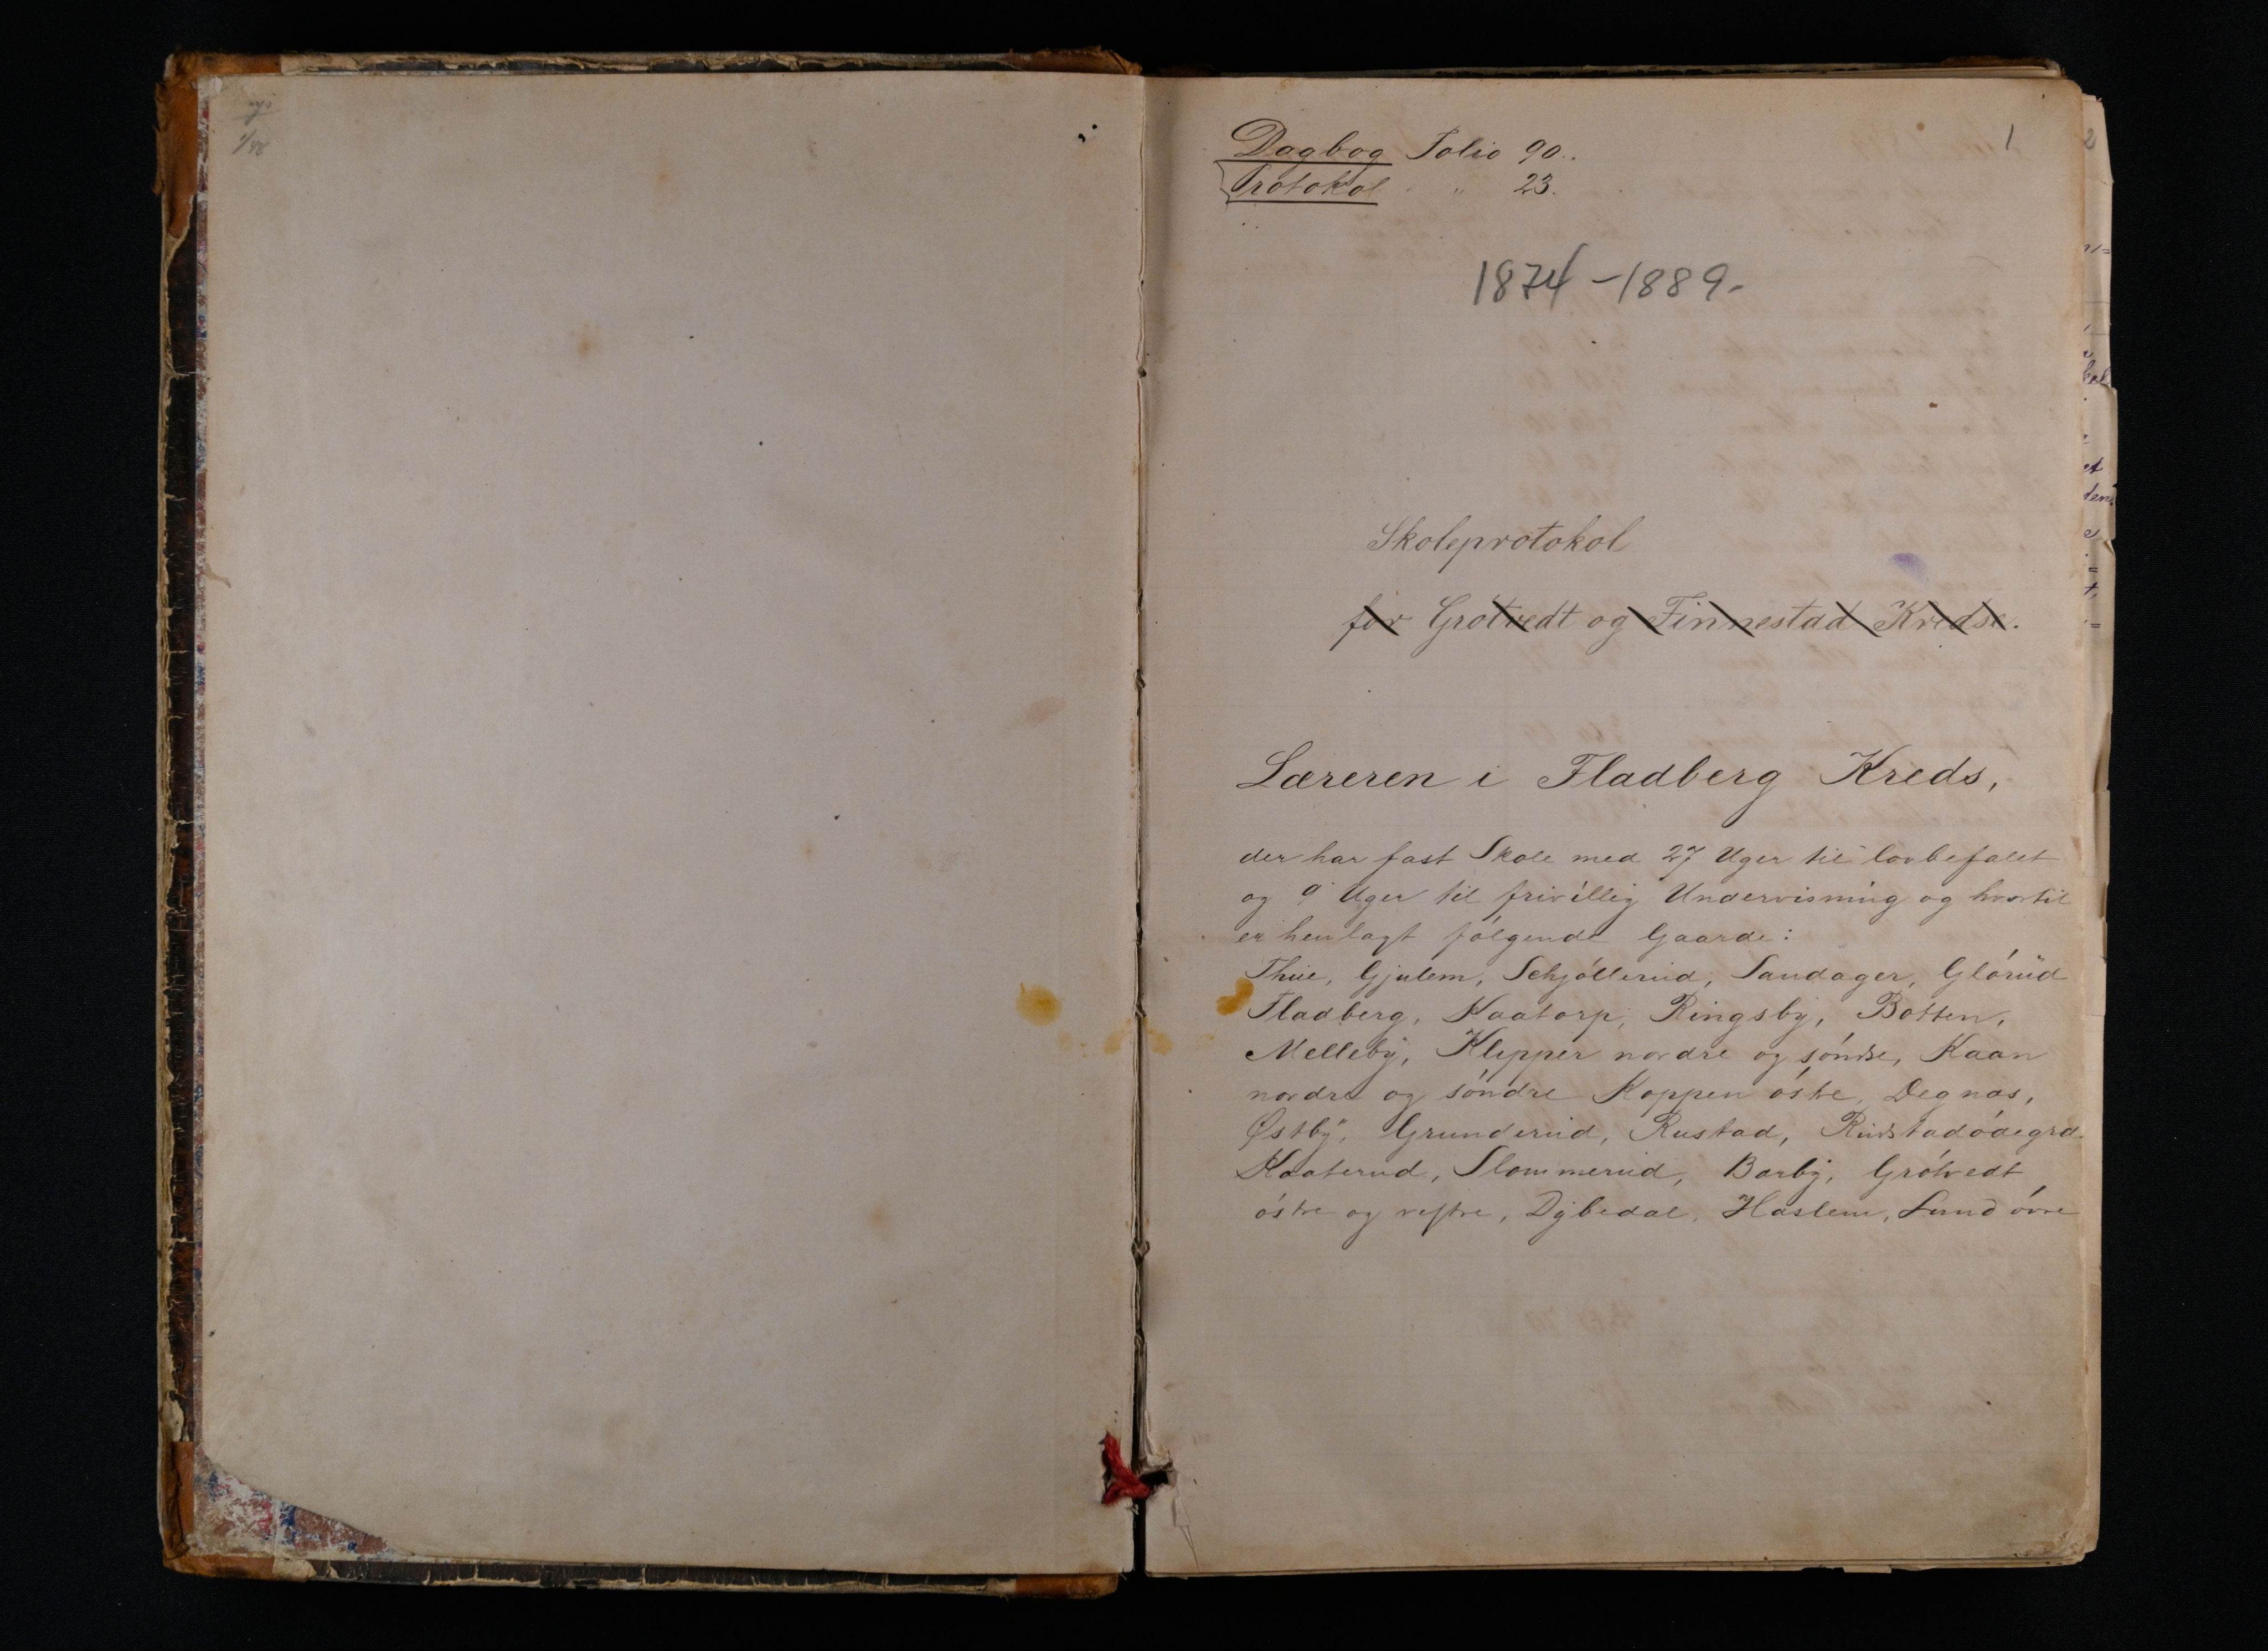 1/48
1
Dagbog Folio 90.
Protokol " 23.
1874-1889.
Skoleprotokol
for Grótvedt og Finnestad Kredse.
Læreren i Fladberg Kreds,
der har fast Skole med 27 Uger til lovbefalet
og 9 Uger til frivillig Undervisning og hvortil
er henlagt fólgende Gaarde:
Thue, Gjulem, Schjóllerud, Sandager, Glórud
Fladberg, Kaatorp, Ringsby, Botten,
Melleby, Klypper nordre og sóndre, Kaan
nordre og sóndre Koppen óstre, Degnæs,
Østby, Grunderud, Rustad, Rustadódegrd
Kaaterud, Slommerud, Barby, Grótvedt
óstre og vestre, Dybedal, Haslem, Lund óvre